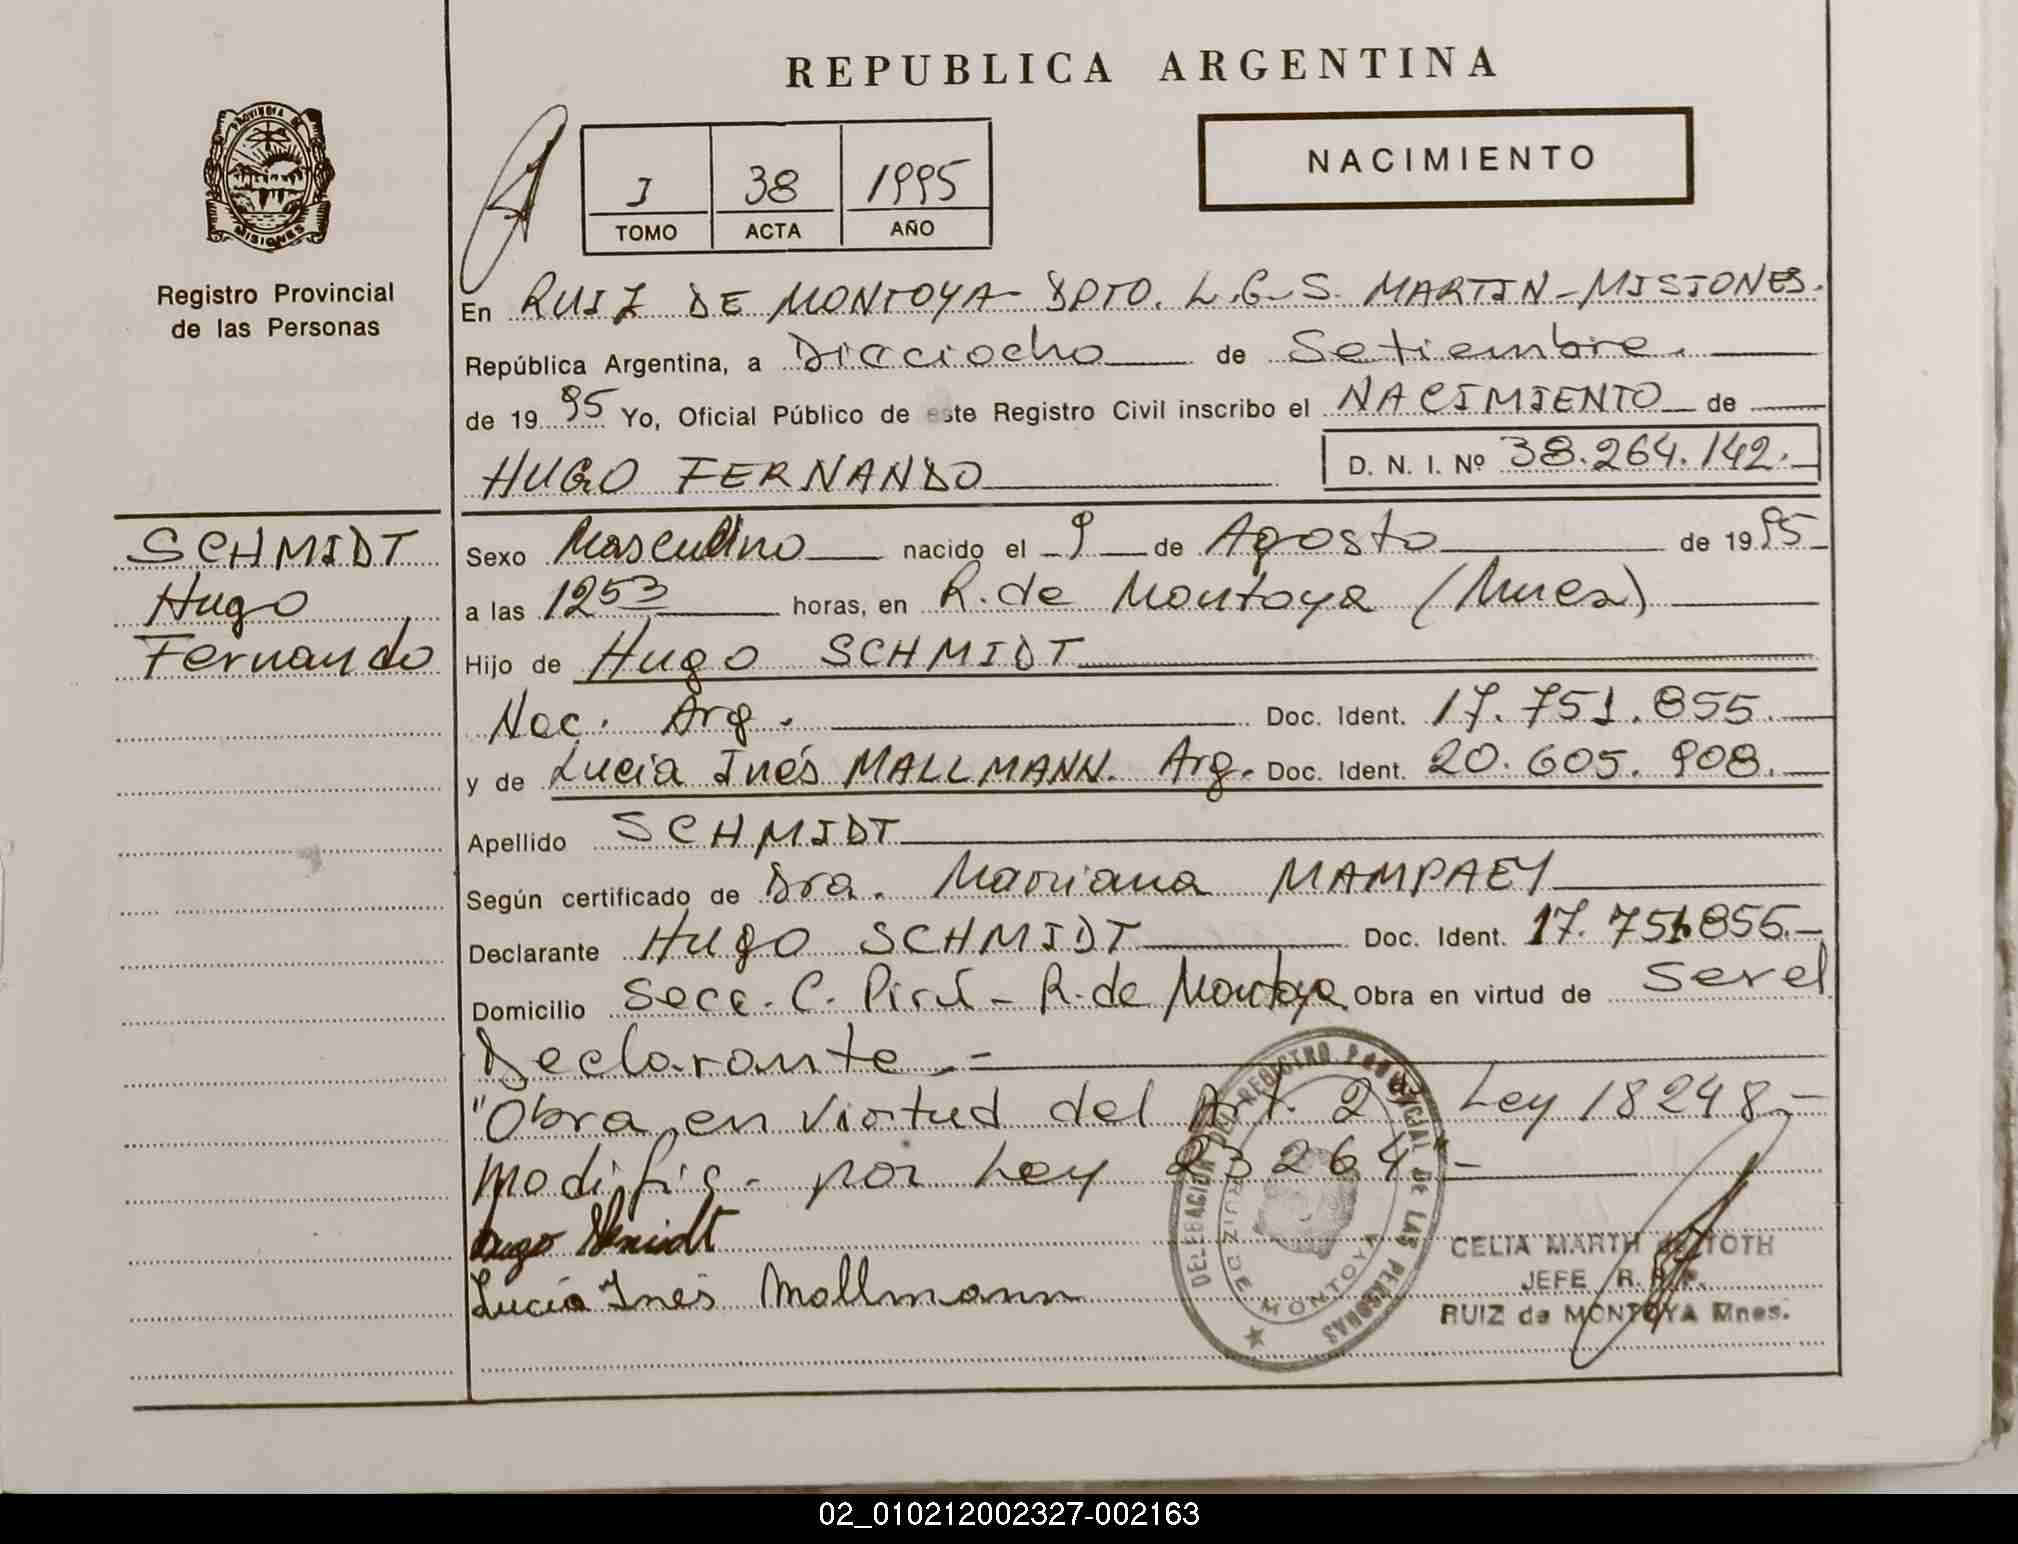 REPUBLICA ARGENTINA
PROVINCIA DE
MISIONES
Registro Provincial
de las Personas
I 38 1995
TOMO ACTA AÑO
NACIMIENTO
En RUIZ DE MONTOYA DPTO. L.G.S. MARTIN-MISIONES.
República Argentina, a Dieciocho de Setiembre.
de 1995 Yo, Oficial Público de este Registro Civil inscribo el NACIMIENTO de
HUGO FERNANDO D. N. I. Nº 38.264.142.
SCHMIDT
Hugo
Fernando
Sexo Masculino nacido el 9 de Agosto de 1995
a las 1253 horas, en R. de Montoya (Mnes)
Hijo de Hugo SCHMIDT
Nac. Arg. Doc. Ident. 17.751.855.
y de Lucía Inés MALLMANN. Arg. Doc. Ident. 20.605.908.
Apellido SCHMIDT
Según certificado de Dra. Mariana MAMPAEY
Declarante Hugo SCHMIDT Doc. Ident. 17.751.855.
Domicilio Secc. C. Pirú - R. de Montoya Obra en virtud de Ser el
Declarante.-
"Obra en virtud del Art. 2 Ley 18248.-
modific. por Ley 23264.-
Hugo Schmidt
Lucía Inés Mallmann
DELEGACION DEL REGISTRO PROVINCIAL DE LAS PERSONAS
RUIZ DE MONTOYA
CELIA MARTH de TOTH
JEFE R. P. P.
RUIZ de MONTOYA Mnes.
02_010212002327-002163